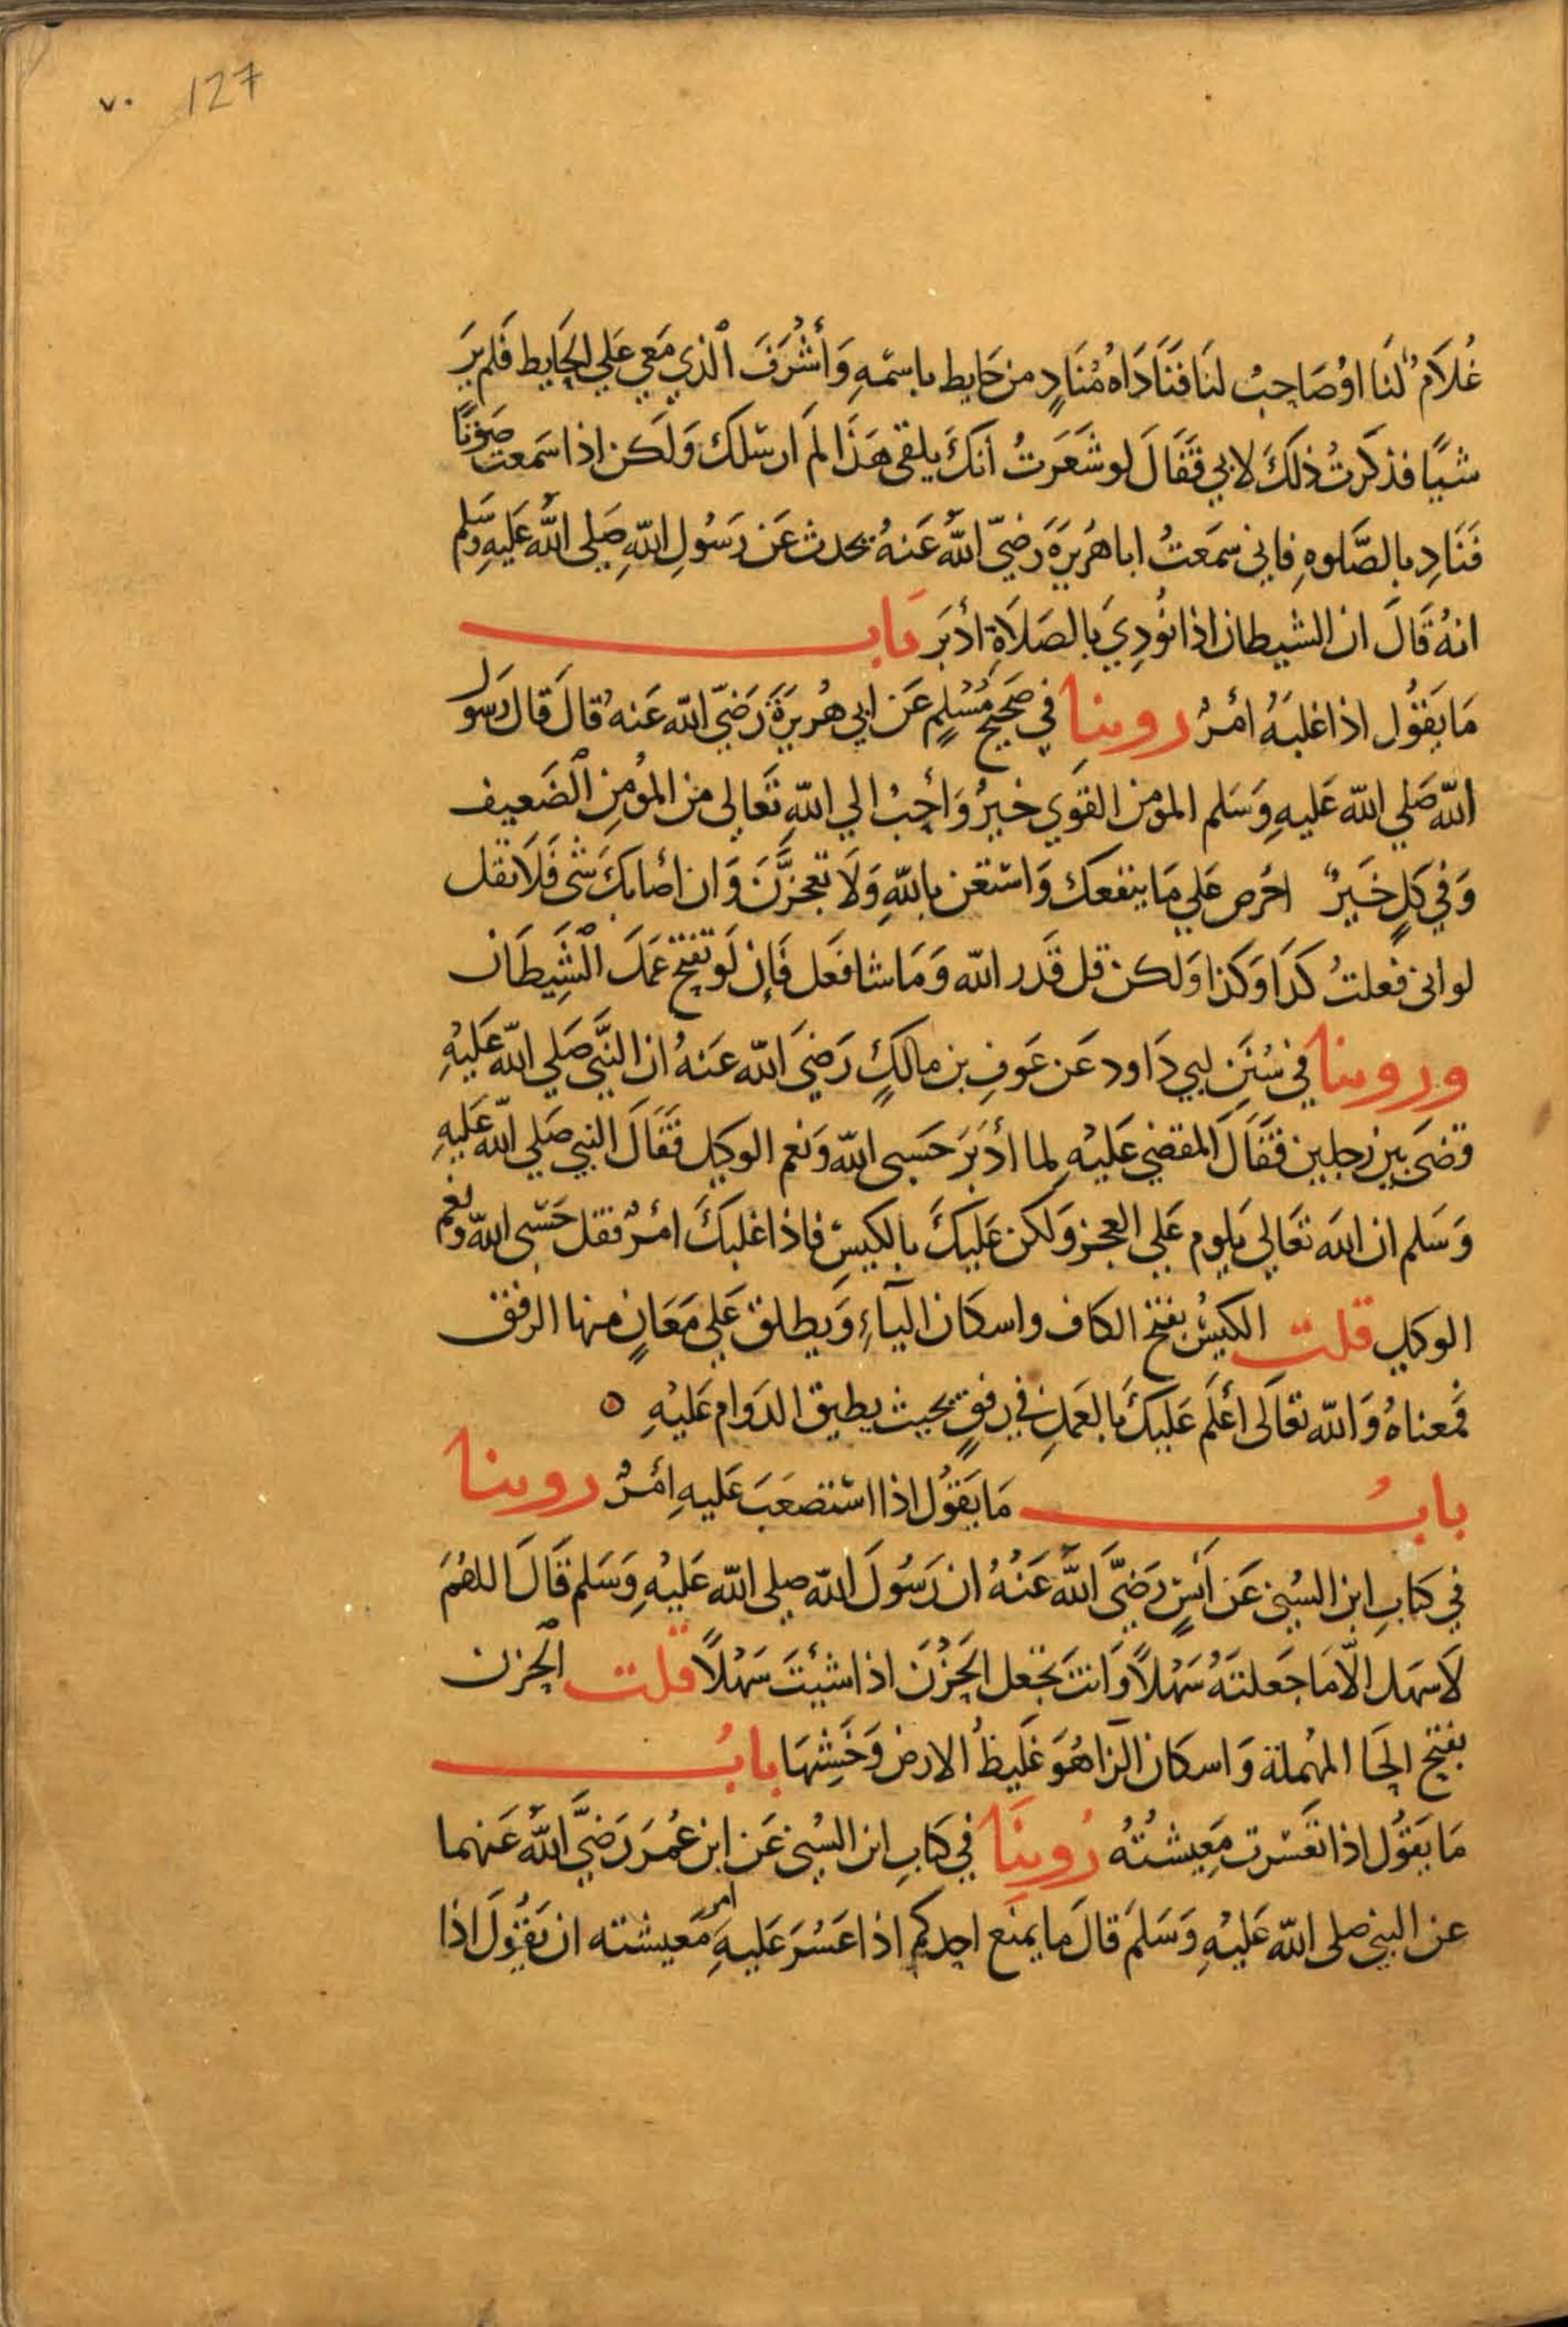 ٧٠ 127
غُلَامٌ لَنَا اوْ صَاحِبٌ لنَا فَنَادَاهُ مُنَادٍ من حَايط باسْمهِ وَأَشْرَفَ الذي مَعي عَلي الحَايط فَلم يَرَ
شيًا فذكَرتُ ذلكَ لابي فَقَالَ لو شَعَرتُ أنكَ يلقى هَذَا لَم ارسلك وَلَكن اذا سَمعتَ صَوتًا
فَنَادِ بالصَّلوهِ فاني سمَعتُ ابا هُرَيرَةَ رَضيَ اللهُ عَنهُ يحدث عَن رَسُولِ اللهِ صَلي اللهُ عَليهِ وسَلم
انهُ قَالَ ان الشيطان اذا نُودِيَ بالصَلَاةِ أدْبَر بَاب
مَا يَقُول اذا غلبَهُ امْرٌ روينا في صَحيح مُسْلمٍ عَن ابي هُريرَةَ رَضيَ الله عَنهُ قالَ قال رسول
الله صَلي الله عَليهِ وَسَلم المومن القَوي خيرٌ وَأحِبُ الي اللهِ تَعَالى من المؤمِنِ الضَعيف
وَفي كلٍ خَيرٌ احَرص عَلي مَا ينفعك وَاستَعن باللهِ وَلَا تعجزَنَّ وَان أصابكَ شى فَلَا تقل
لو انى فعلتُ كذَا وَكذا وَلكن قل قَدر الله وَمَا شا فعَل فَإن لَو تفتح عَمَلَ الشَيطَان
وروينا في سُنَنِ ابي دَاود عَن عَوفِ بن مالكٍ رَضيَ الله عَنهُ ان النَّبي صَلي الله عَليْهِ
قضَى بين رَجلين فقَالَ المقضي عَليْهِ لما أدْبَرَ حَسبى الله وَنعم الوكيل فقَالَ النبي صَلي الله عَليهِ
وَسَلم ان الله تعَالي يَلوم عَلي العجز وَلكن عَليكَ بالكيسِ فاذا غلبكَ امْرٌ فقل حَسْبى الله ونعم
الوكيل قلت الكَيسُ بفتح الكاف واسكان اليَاءِ وَيطلق عَلي مَعَانٍ منها الرفق
فمعناهُ وَالله تعَالَى أعْلم عَليكَ بالعَمَلِ في رفقٍ بحيث يطيق الدَوام عَليْهِ ٥
بابُ مَا يَقوُل اذا استَصعَبَ عَليهِ امْرٌ روينا
في كتابِ ابن السُني عَن انَسٍ رَضيَ اللهُ عَنْهُ ان رَسُولَ الله صلى الله عَليْهِ وَسَلم قَالَ اللهُمَ
لَا سَهَل الّا مَا جَعلتَهُ سَهْلاً وَانتَ تجعَل الحَزْنَ اذا شيئتَ سَهْلاً قلت الحَزن
بفتح الحَا المهُملة وَاسكان الزا هُوَ غَليظُ الارض وَخَشِنهَا بابُ
مَا يَقوُل اذا تعَسّرت مَعِيشتُهُ رُوينَا في كتَابِ ابن السُني عَن ابن عُمَرَ رَضيَ اللهُ عَنهما
عن النبي صلى الله عَليْهِ وَسَلمَ قالَ ما يمنَع احدكم اذا عَسُرَ عَليهِ امر مَعيشته ان يَقوُلَ اذا